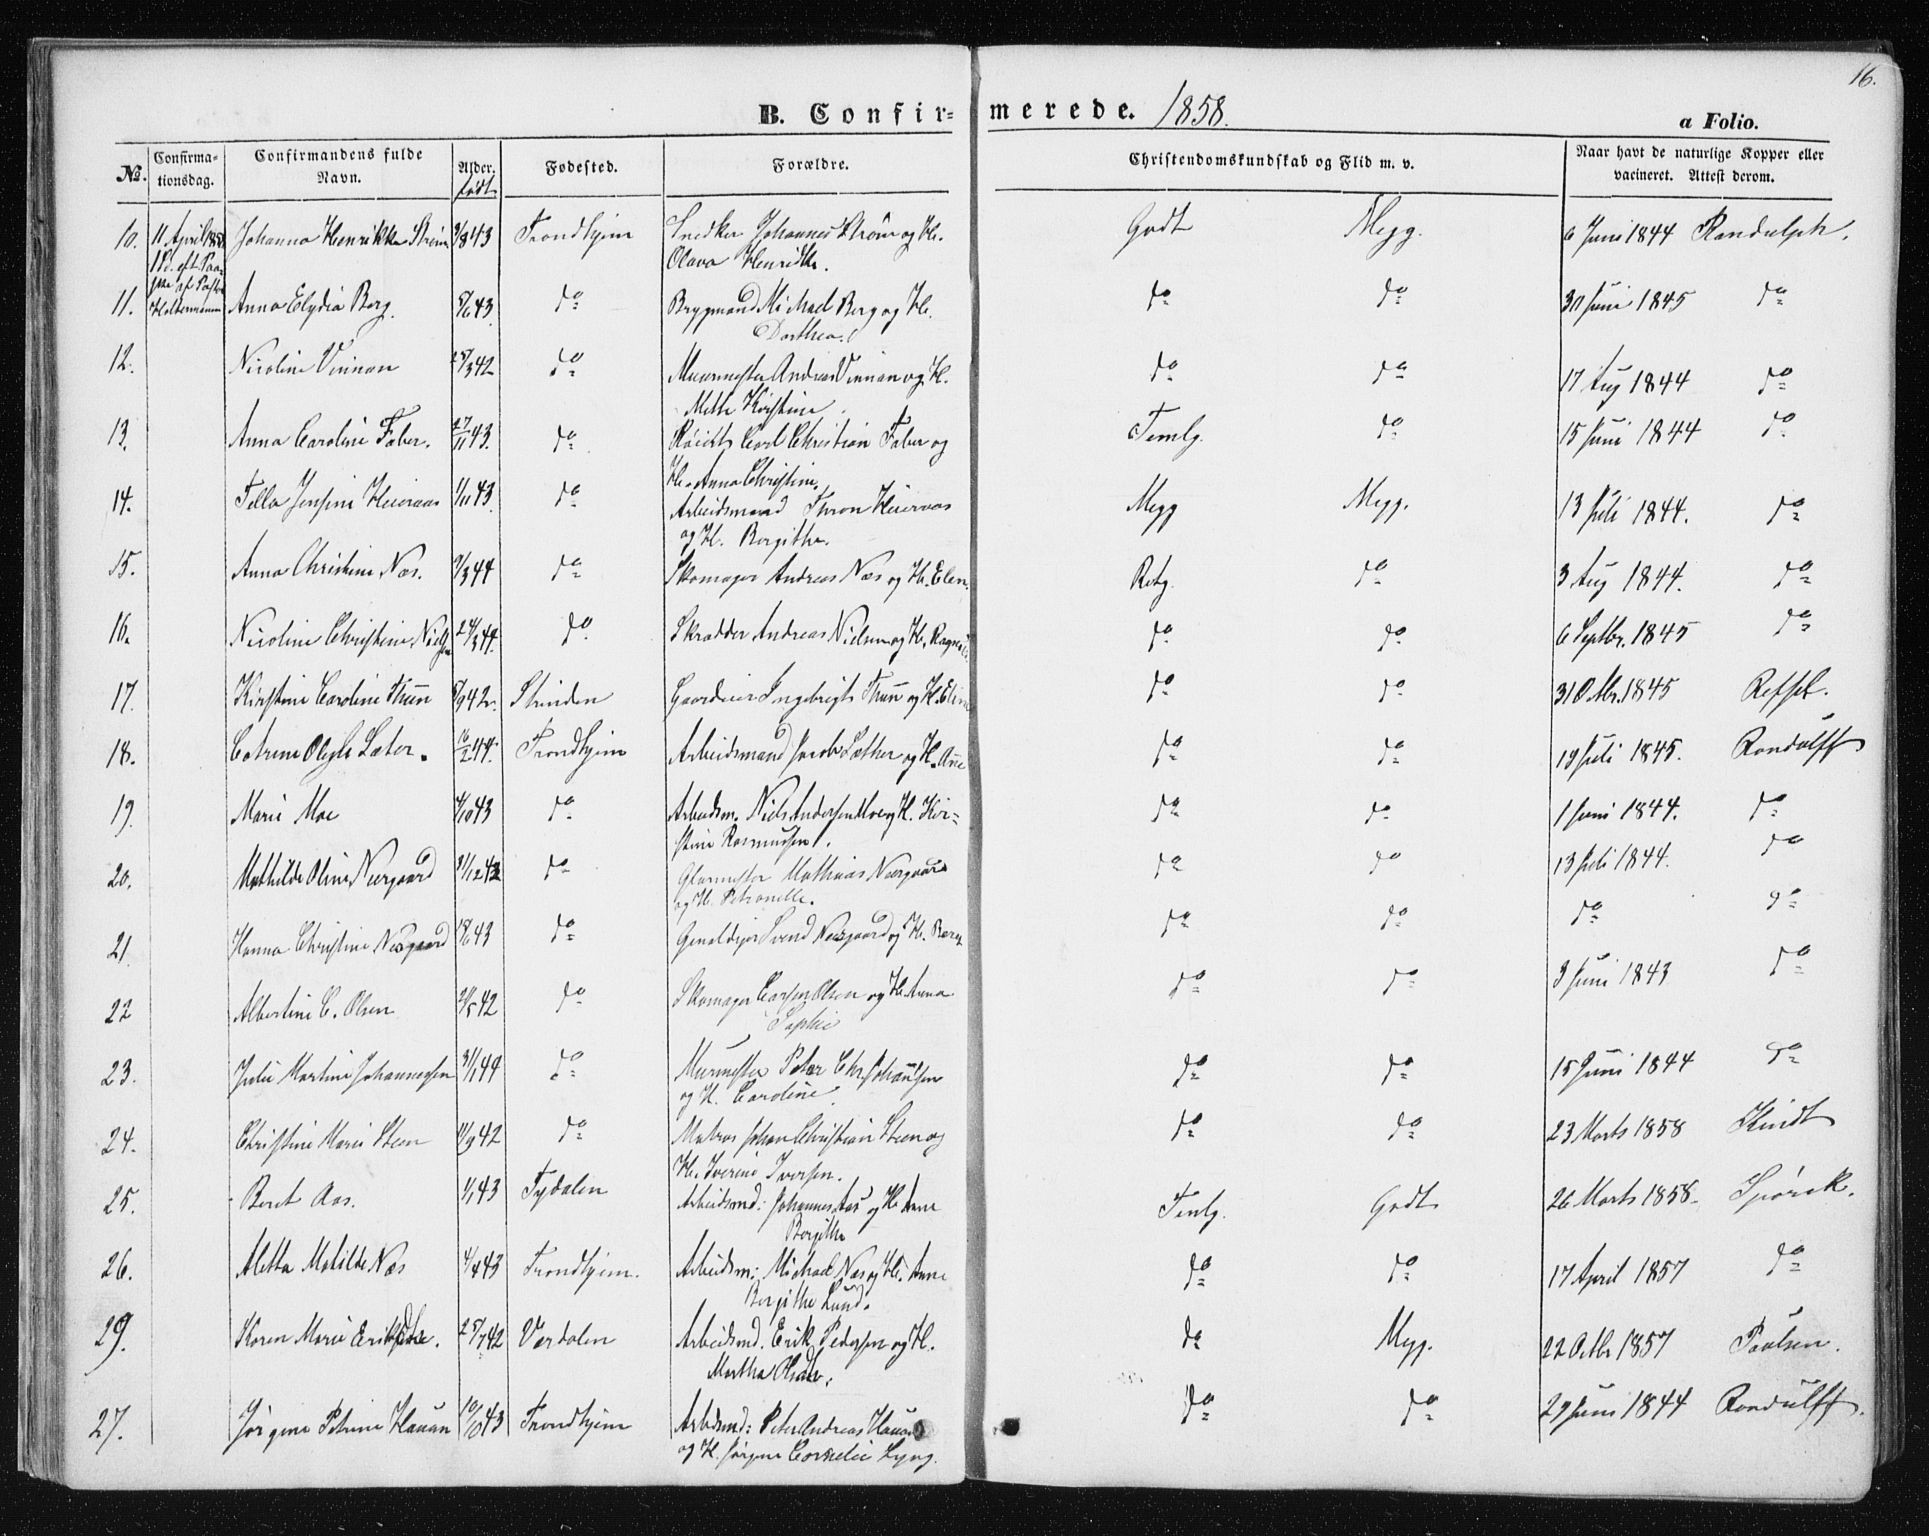 16.
B. Confir- merede. 1858.
a Folio.
No. Confirma- Confirmandens fulde Alder. Fødested. Forældre. Christendomskundskab og Flid m. v. Naar havt de naturlige Kopper eller
tionsdag. Navn. født vacineret. Attest derom.
10. 11 April 1858 Johanna Henrikke Strøm 43 Trondhjem Snedker Johannes Strøm og H. Godt Megg. 6 Juni 1844 Randulph.
Olava Henrikke.
11. Anna Elydia Berg. 43. do Brygmand Michael Berg og H. do do 30 Juni 1845 do
Dorthea.
12. Nicoline Vinnan 25/3 42 do Muurmester Andreas Vinnan og H. do do 17 Aug 1844 do
Mette Kirstine.
13. Anna Caroline Faber. 27/11 43. do Carl Christian Faber og Temlg. do 15 Juni 1844 do
H. Anna Christine.
14. Jensine 1/11 43. do Arbeidsmand Megg Megg. 13 Juli 1844. do
og H. Bergithe.
15. Anna Christine Næs. 9/3 44 do Skomager Andreas Næs og H. Elen. Retg. do 3 Aug 1844. do
16. Nicoline Christine Nielsen 24/3 44. do Skrædder Andreas Nielsen og H. do do 6 Septbr. 1845 do
17. Kirstine Caroline Thun 42. Strinden Ingebrigt Thun og H. do do 31 1845
18. Sæter. 16/2 44. Trondhjem Arbeidsmand Jacob Sæther og H. Ane do do 19 Juli 1845. Randulff
19. Marie Moe 4/10 43 do Arbeidsm. Niels Andersen Moe og H. Kir- do do 1 Juni 1844. do
stine Rasmussen.
20. Mathilde Oline Neergaard 31/12 43 do Glarmester Mathias Neergaard do do 13 Juli 1844. do
og H. Petronelle.
21 Hanna Christine Nesgaard 43 do Svend Nesgaard og H. do do do do
22 Albertine C. Olsen 42 do Skomager Olsen og H. Anna do do 3 Juni 1843 do
Sophie
23. Julie Martine Johannesen 31/1 44 do Murmester Peter Chr. Johansen do do 15 Juni 1844 do
og H. Caroline.
24. Christine Marie Steen 11/9 42 do Matros Johan Christian Steen og do do 23 Marts 1858 Kindt
H. Iverine Iversen.
25. Beret Aas. 1/1 43 Tydalen Arbeidsmd: Johannes Aas og H. Anne Temlg. Godt 26 Marts 1858. Spørck.
Bergithe
26. Aletta Matilde Næs 4/4 43 Trondhjem. Arbeidsm: Michael Næs og H. Anne do do 17 April 1857 do
Bergithe Lund.
29. Karen Marie 25/7 42 Værdalen Arbeidsmd. Erik Pedersen og H. do Megg. 22 Octbr 1857 Paulsen.
Martha
27. Jørgine Petrine Hauan 10/10 43 Trondhjem Arbdsmd: Peter Andreas Hauan do do 29 Juni 1844 Randulff.
og H. Jørgine Cornelie Lyng.